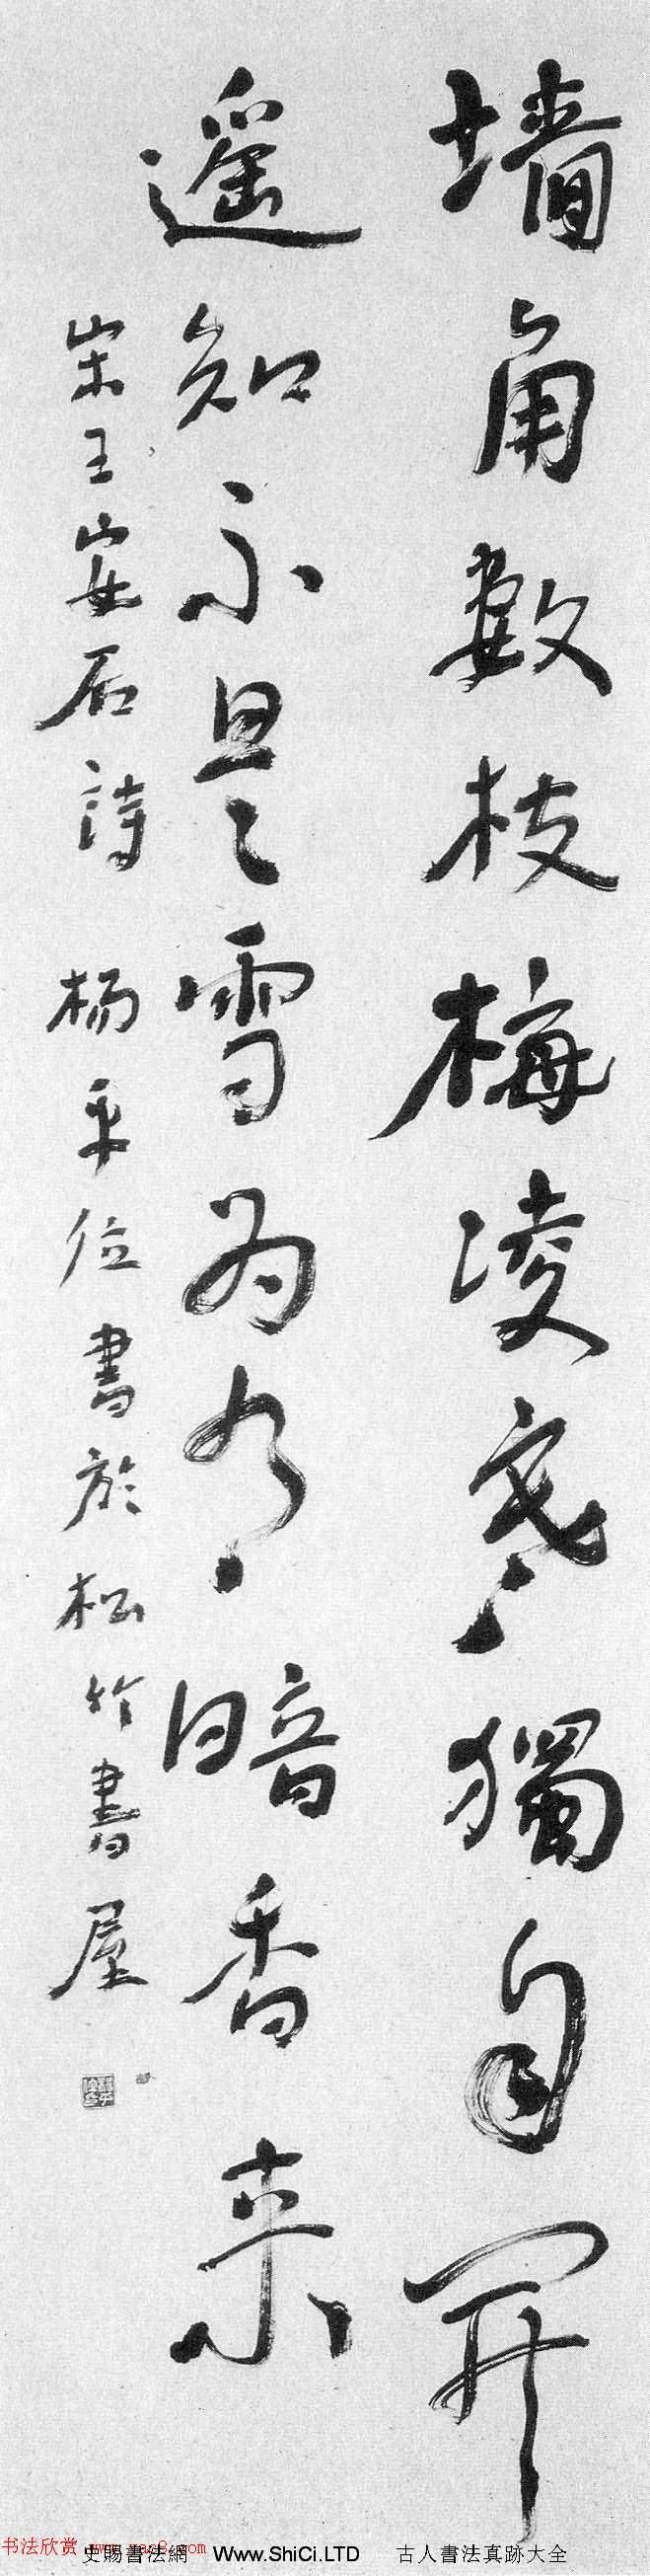 墙角數枝梅凌寒獨自開
遥知不是雪为有暗香来
宋王安石詩 杨平位書於松竹書屋
书法欣赏 www.yac8.com
史賜書法網 www.ShiCi.LTD 古人書法真跡大全